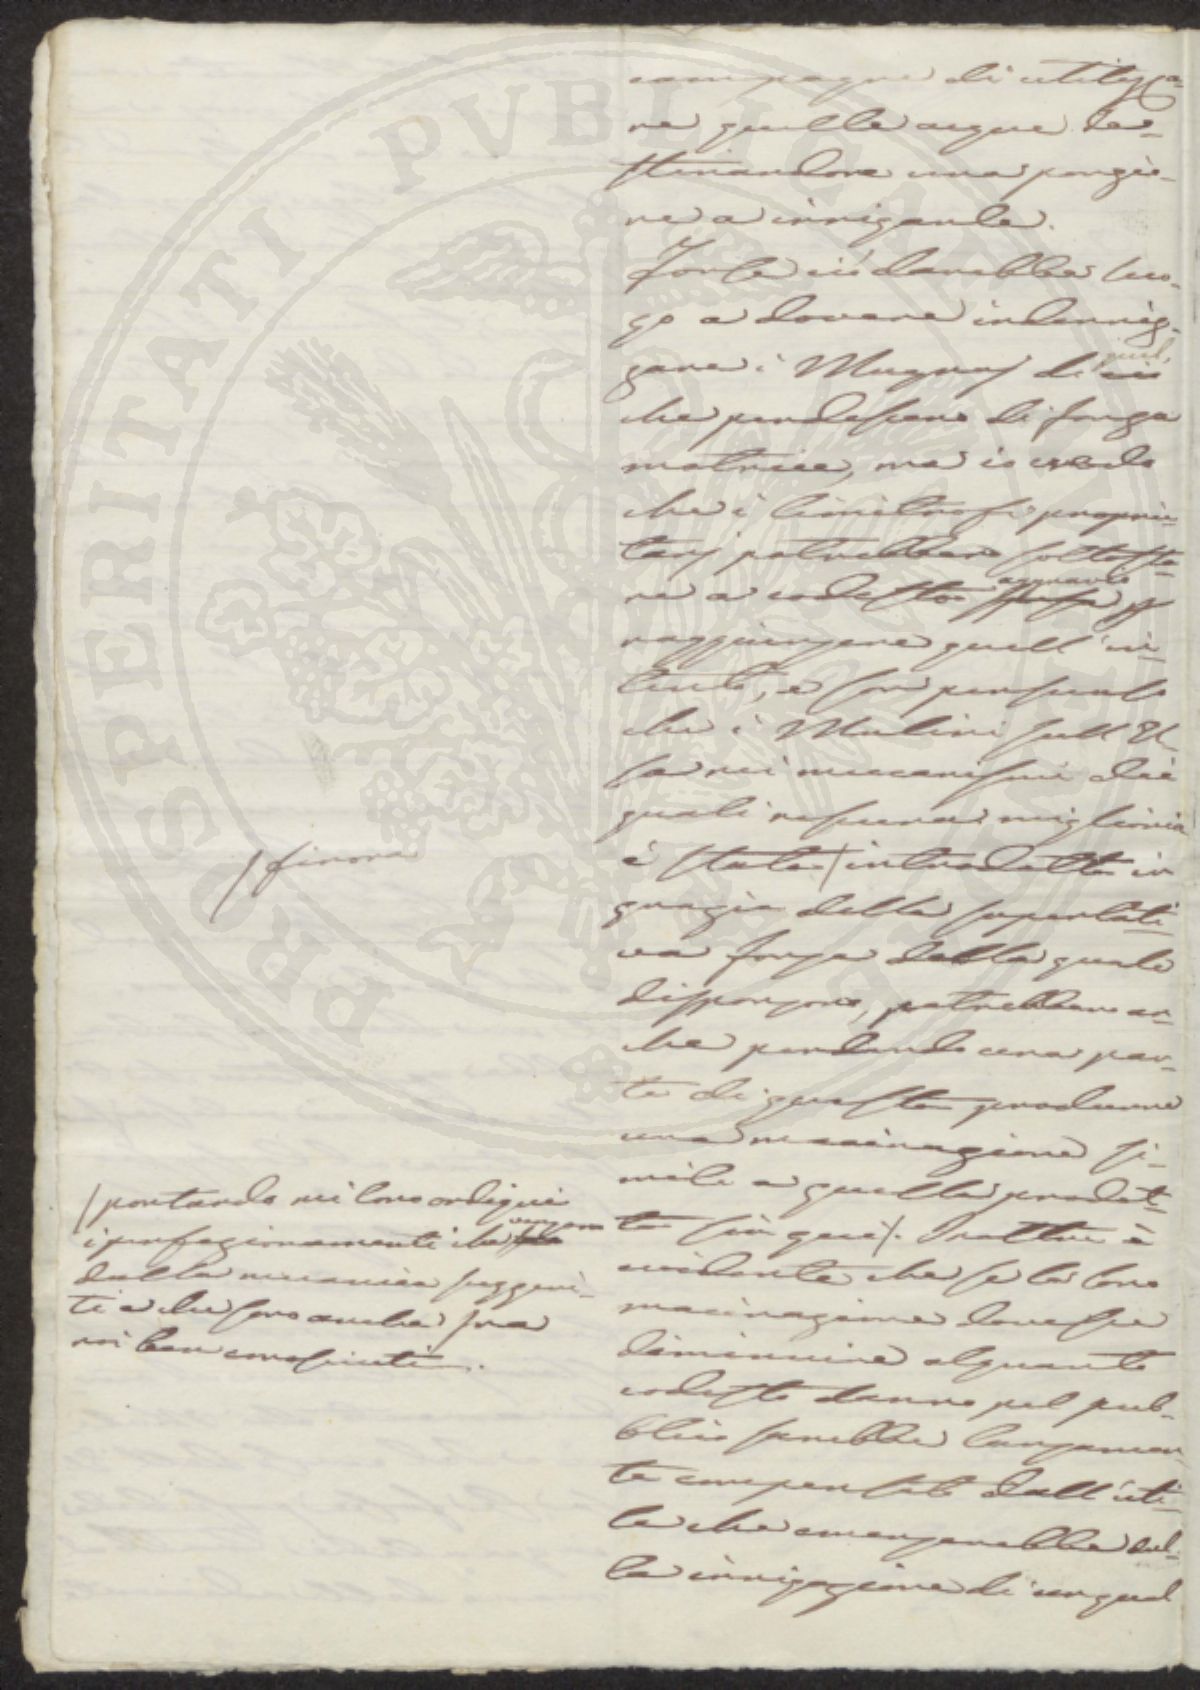 campagne di utilizza-
re quelle acque de-
stinandone una porzio-
ne a irrigarle.
Forse ciò darebbe luo-
go a dovere indenniz-
zare i Mugnaj di ciò quel
che perdessero di forza
motrice, ma io credo
che i limitrofi proprie-
tarj potrebbero sottosta-
re a codesto aggravio
raggiungere quell'in-
tento, e son persuaso
che i Mulini sull'El-
sa nei meccanismi dei
quali nessuna miglioria
è stata / introdotta in
grazia della superlati-
va forza della quale
dispongono, potrebbero an-
che perdendo una par-
te di questa produrre
una macinazione si-
mile a quella prodot-
ta sin qui /. D'altra è
evidente che se la loro
macinazione dovesse
diminuire alquanto
codesto danno pel pub-
blico sarebbe largamen-
te compensato dall'uti-
le che emergerebbe dal-
la irrigazione di un quel
/ finora
/ portando nei loro ordigni
i perfezionamenti che vengono
dalla meccanica suggeri-
ti e che sono anche fra
noi ben conosciuti.
PROSPERITATI PVBLICAE